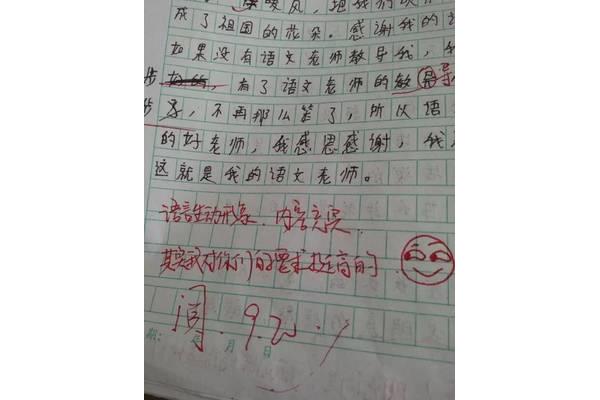 暖风，把我们
成了祖国的花朵。感谢我的
如果没有语文老师教导我，我
有了语文老师的教导
，不再那么笨了，所以语
的好老师，我感恩感谢，我
这就是我的语文老师。
语言生动形象．内容充实
其实我对你们的要求挺高的
阅．9.20
期： 月 日